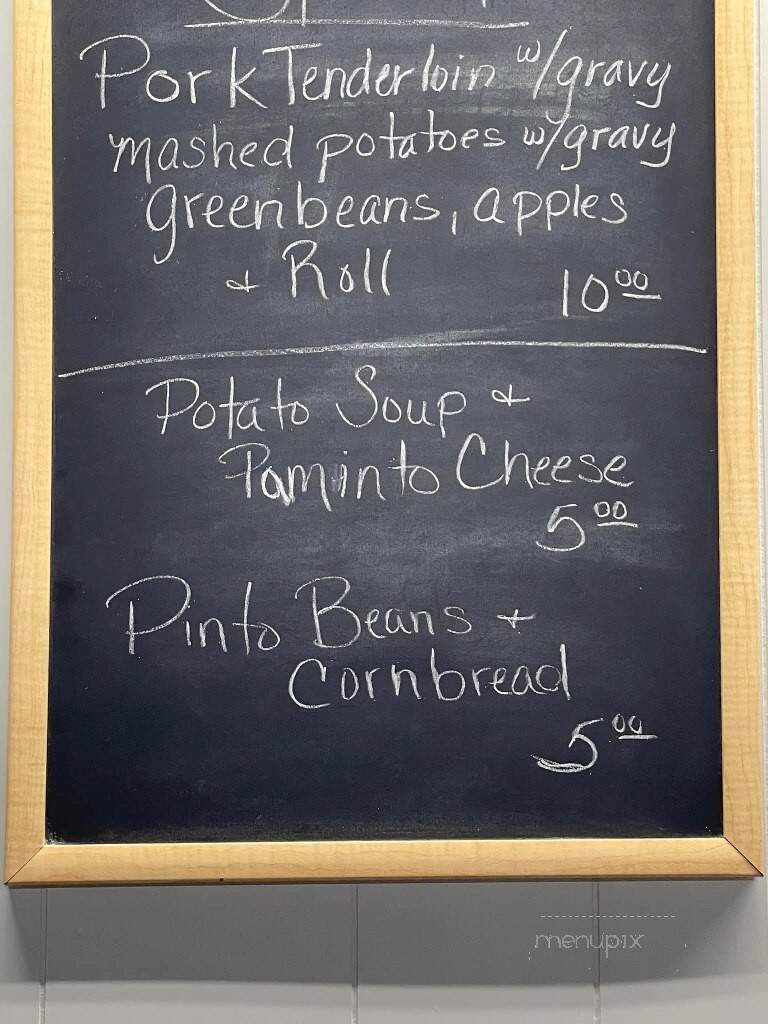 Pork Tenderloin w/gravy
mashed potatoes w/gravy
greenbeans, apples
& Roll 10⁰⁰
Potato Soup &
Paminto Cheese
5⁰⁰
Pinto Beans +
Cornbread
5⁰⁰
menupix